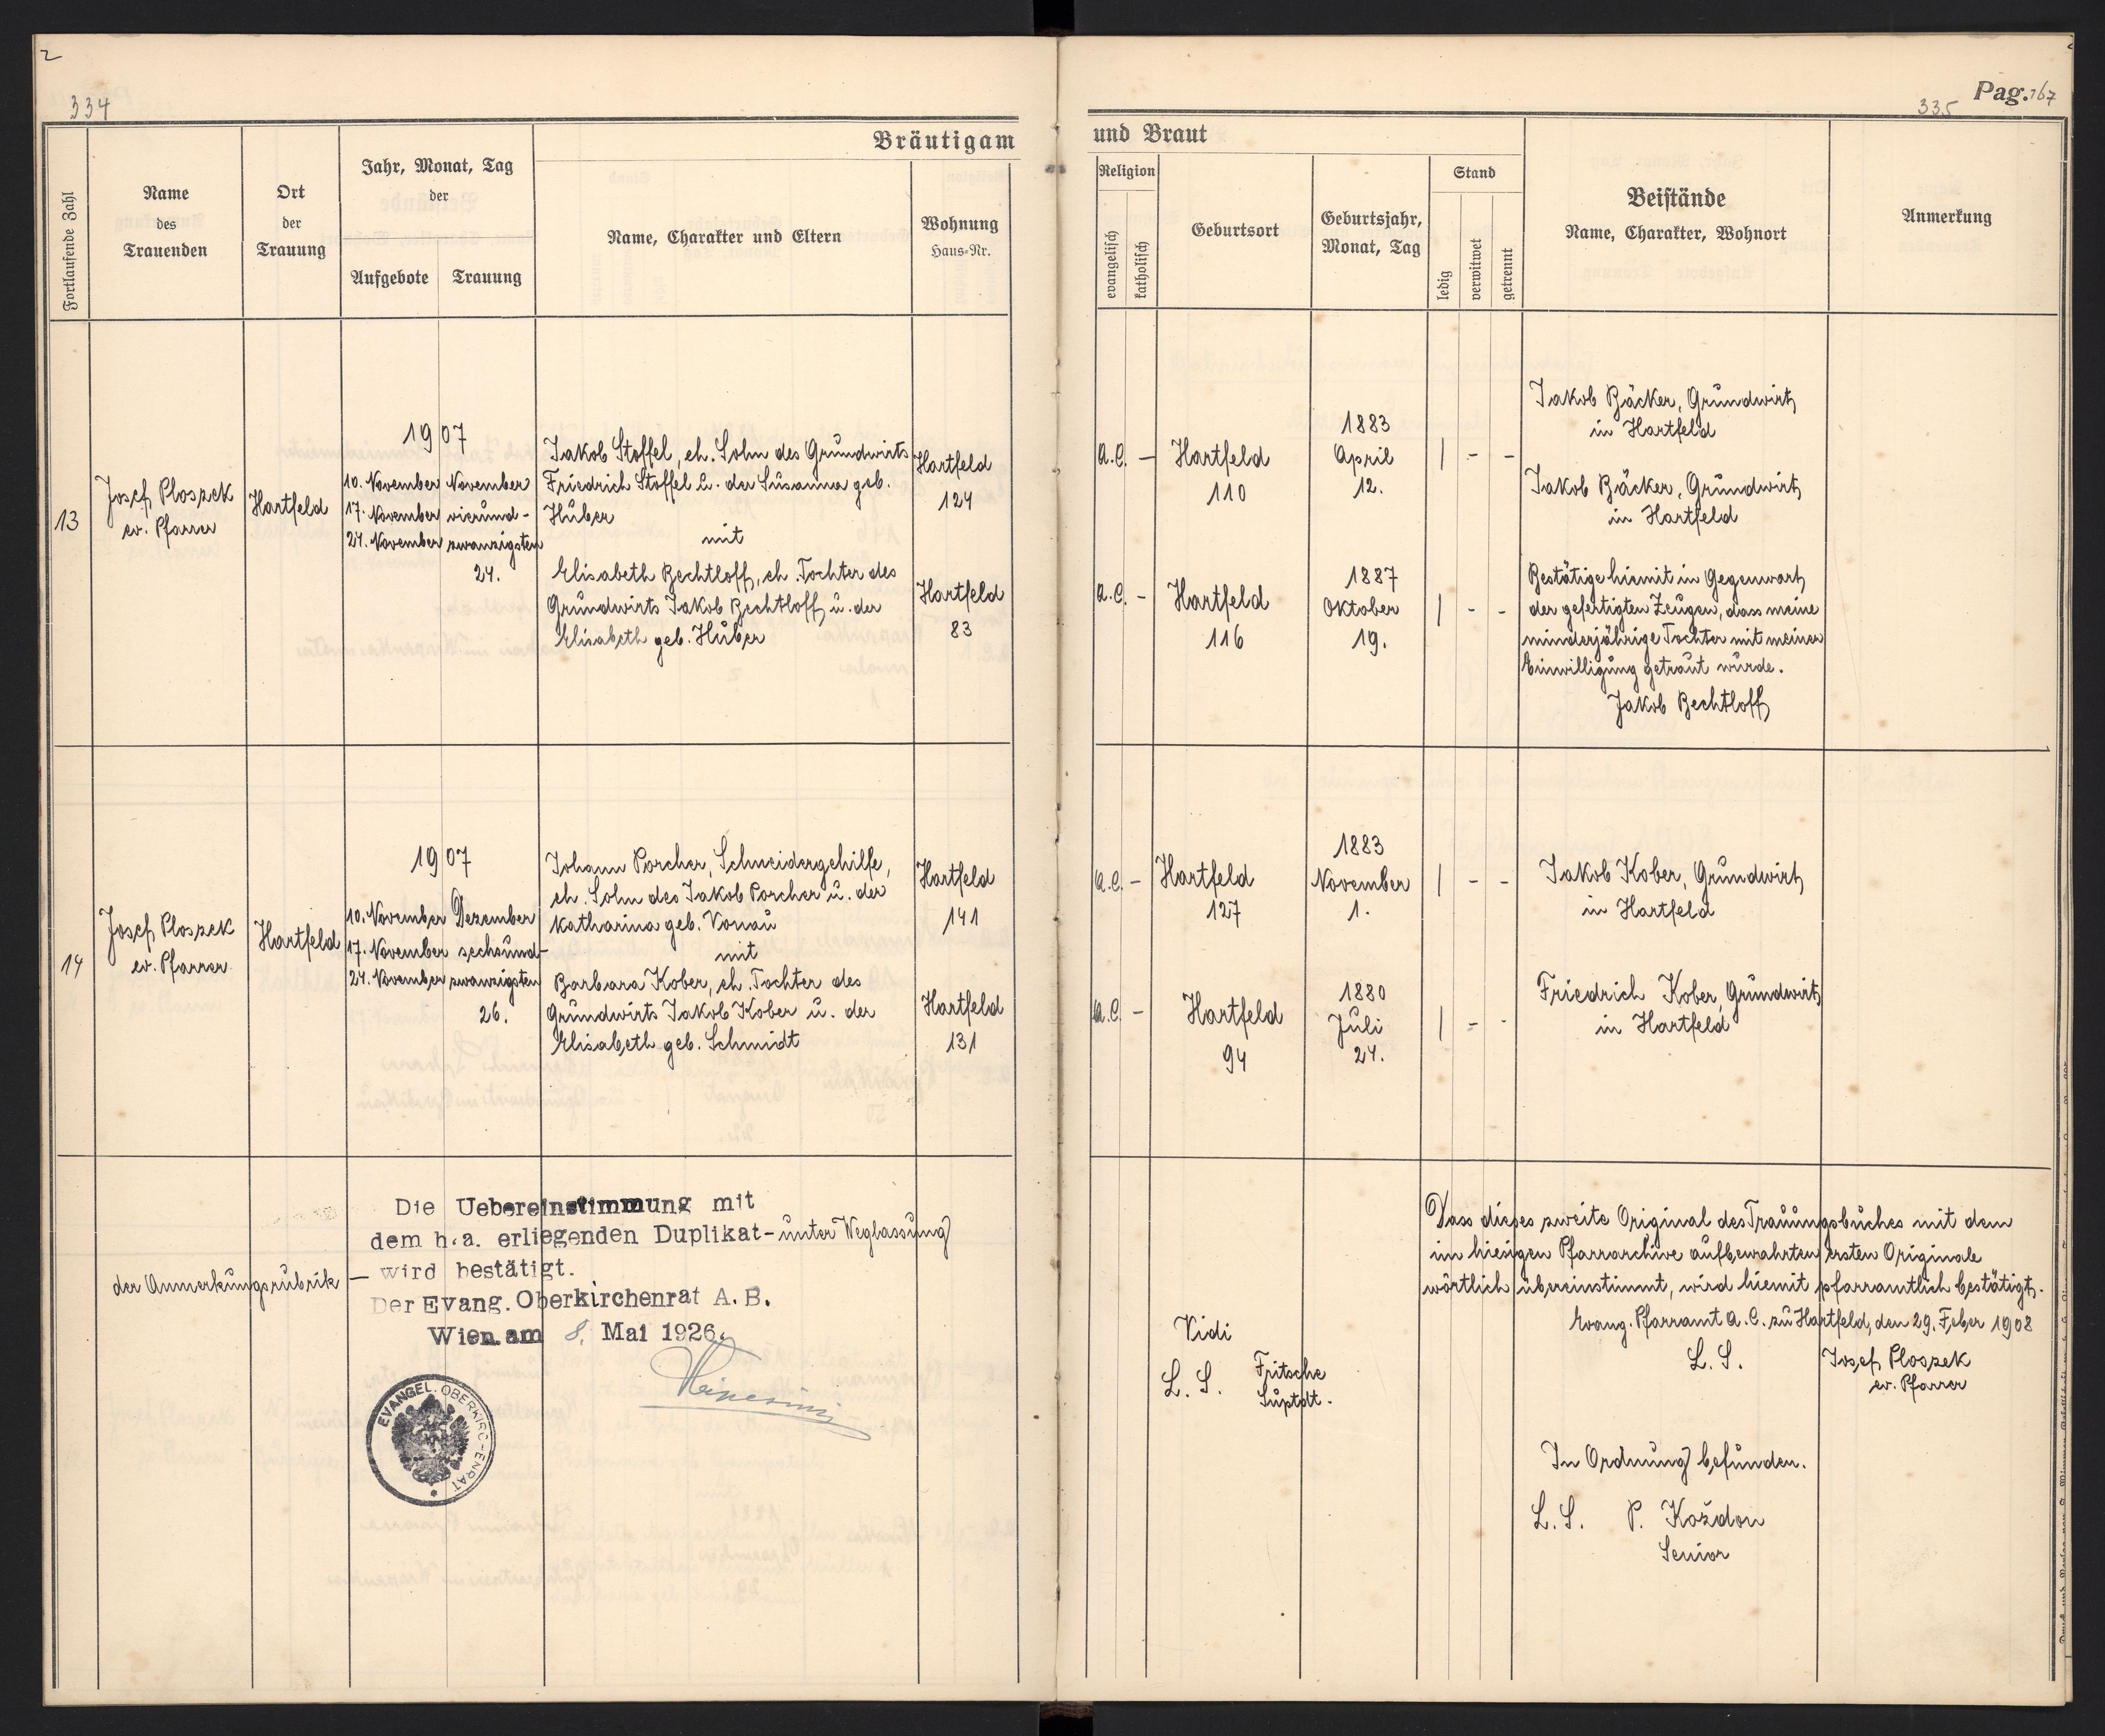 2
334
335
Pag. 167
Bräutigam
und Braut
Fortlaufende Zahl
Name
des
Trauenden
Ort
der
Trauung
Jahr, Monat, Tag
der
Aufgebote
Trauung
Name, Charakter und Eltern
Wohnung
Haus-Nr.
Religion
evangelisch
katholisch
Geburtsort
Geburtsjahr,
Monat, Tag
Stand
ledig
verwitwet
getrennt
Beistände
Name, Charakter, Wohnort
Anmerkung
13
Josef Ploszek
ev. Pfarrer
Hartfeld
1907
10. November
17. November
24. November
November
vierund-
zwanzigsten
24.
Jakob Stoffel, eh. Sohn des Grundwirts
Friedrich Stoffel u. der Susanna geb.
Huber
mit
Elisabeth Bechtloff, eh. Tochter des
Grundwirts Jakob Bechtloff u. der
Elisabeth geb. Huber
Hartfeld
124
Hartfeld
83
A.C. –
Hartfeld
110
1883
April
12.
| - -
A.C. -
Hartfeld
116
1887
Oktober
19.
| - -
Jakob Bäcker, Grundwirt
in Hartfeld
Jakob Bäcker, Grundwirt
in Hartfeld
Bestätige hiemit in Gegenwart
der gefertigten Zeugen, dass meine
minderjährige Tochter mit meiner
Einwilligung getraut wurde.
Jakob Bechtloff
14
Josef Ploszek
ev. Pfarrer
Hartfeld
1907
10. November
17. November
24. November
Dezember
sechsund-
zwanzigsten
26.
Johann Porcher, Schneidergehilfe,
eh. Sohn des Jakob Porcher u. der
Katharina geb. Vonau
mit
Barbara Kober, eh. Tochter des
Grundwirts Jakob Kober u. der
Elisabeth geb. Schmidt
Hartfeld
141
Hartfeld
131
A.C. -
Hartfeld
127
1883
November
1.
| - -
A.C. -
Hartfeld
94
1880
Juli
24.
| - -
Jakob Kober, Grundwirt
in Hartfeld
Friedrich Kober, Grundwirt
in Hartfeld
Die Uebereinstimmung mit
dem h.a. erliegenden Duplikat - unter Weglassung
der Anmerkungsrubrik — wird bestätigt.
Der Evang. Oberkirchenrat A. B.
Wien am 8. Mai 1926.
EVANGEL. OBERKIRCHENRAT
Vidi
L. S. Fritsche
Suptdt.
Dass dieses zweite Original des Trauungsbuches mit dem
im hiesigen Pfarrarchive aufbewahrten ersten Originale
wörtlich übereinstimmt, wird hiemit pfarramtlich bestätigt.
Evang. Pfarramt A. C. zu Hartfeld, den 29. Feber 1908
L. S. Josef Ploszek
ev. Pfarrer
In Ordnung befunden.
L. S. P. Koždon
Senior